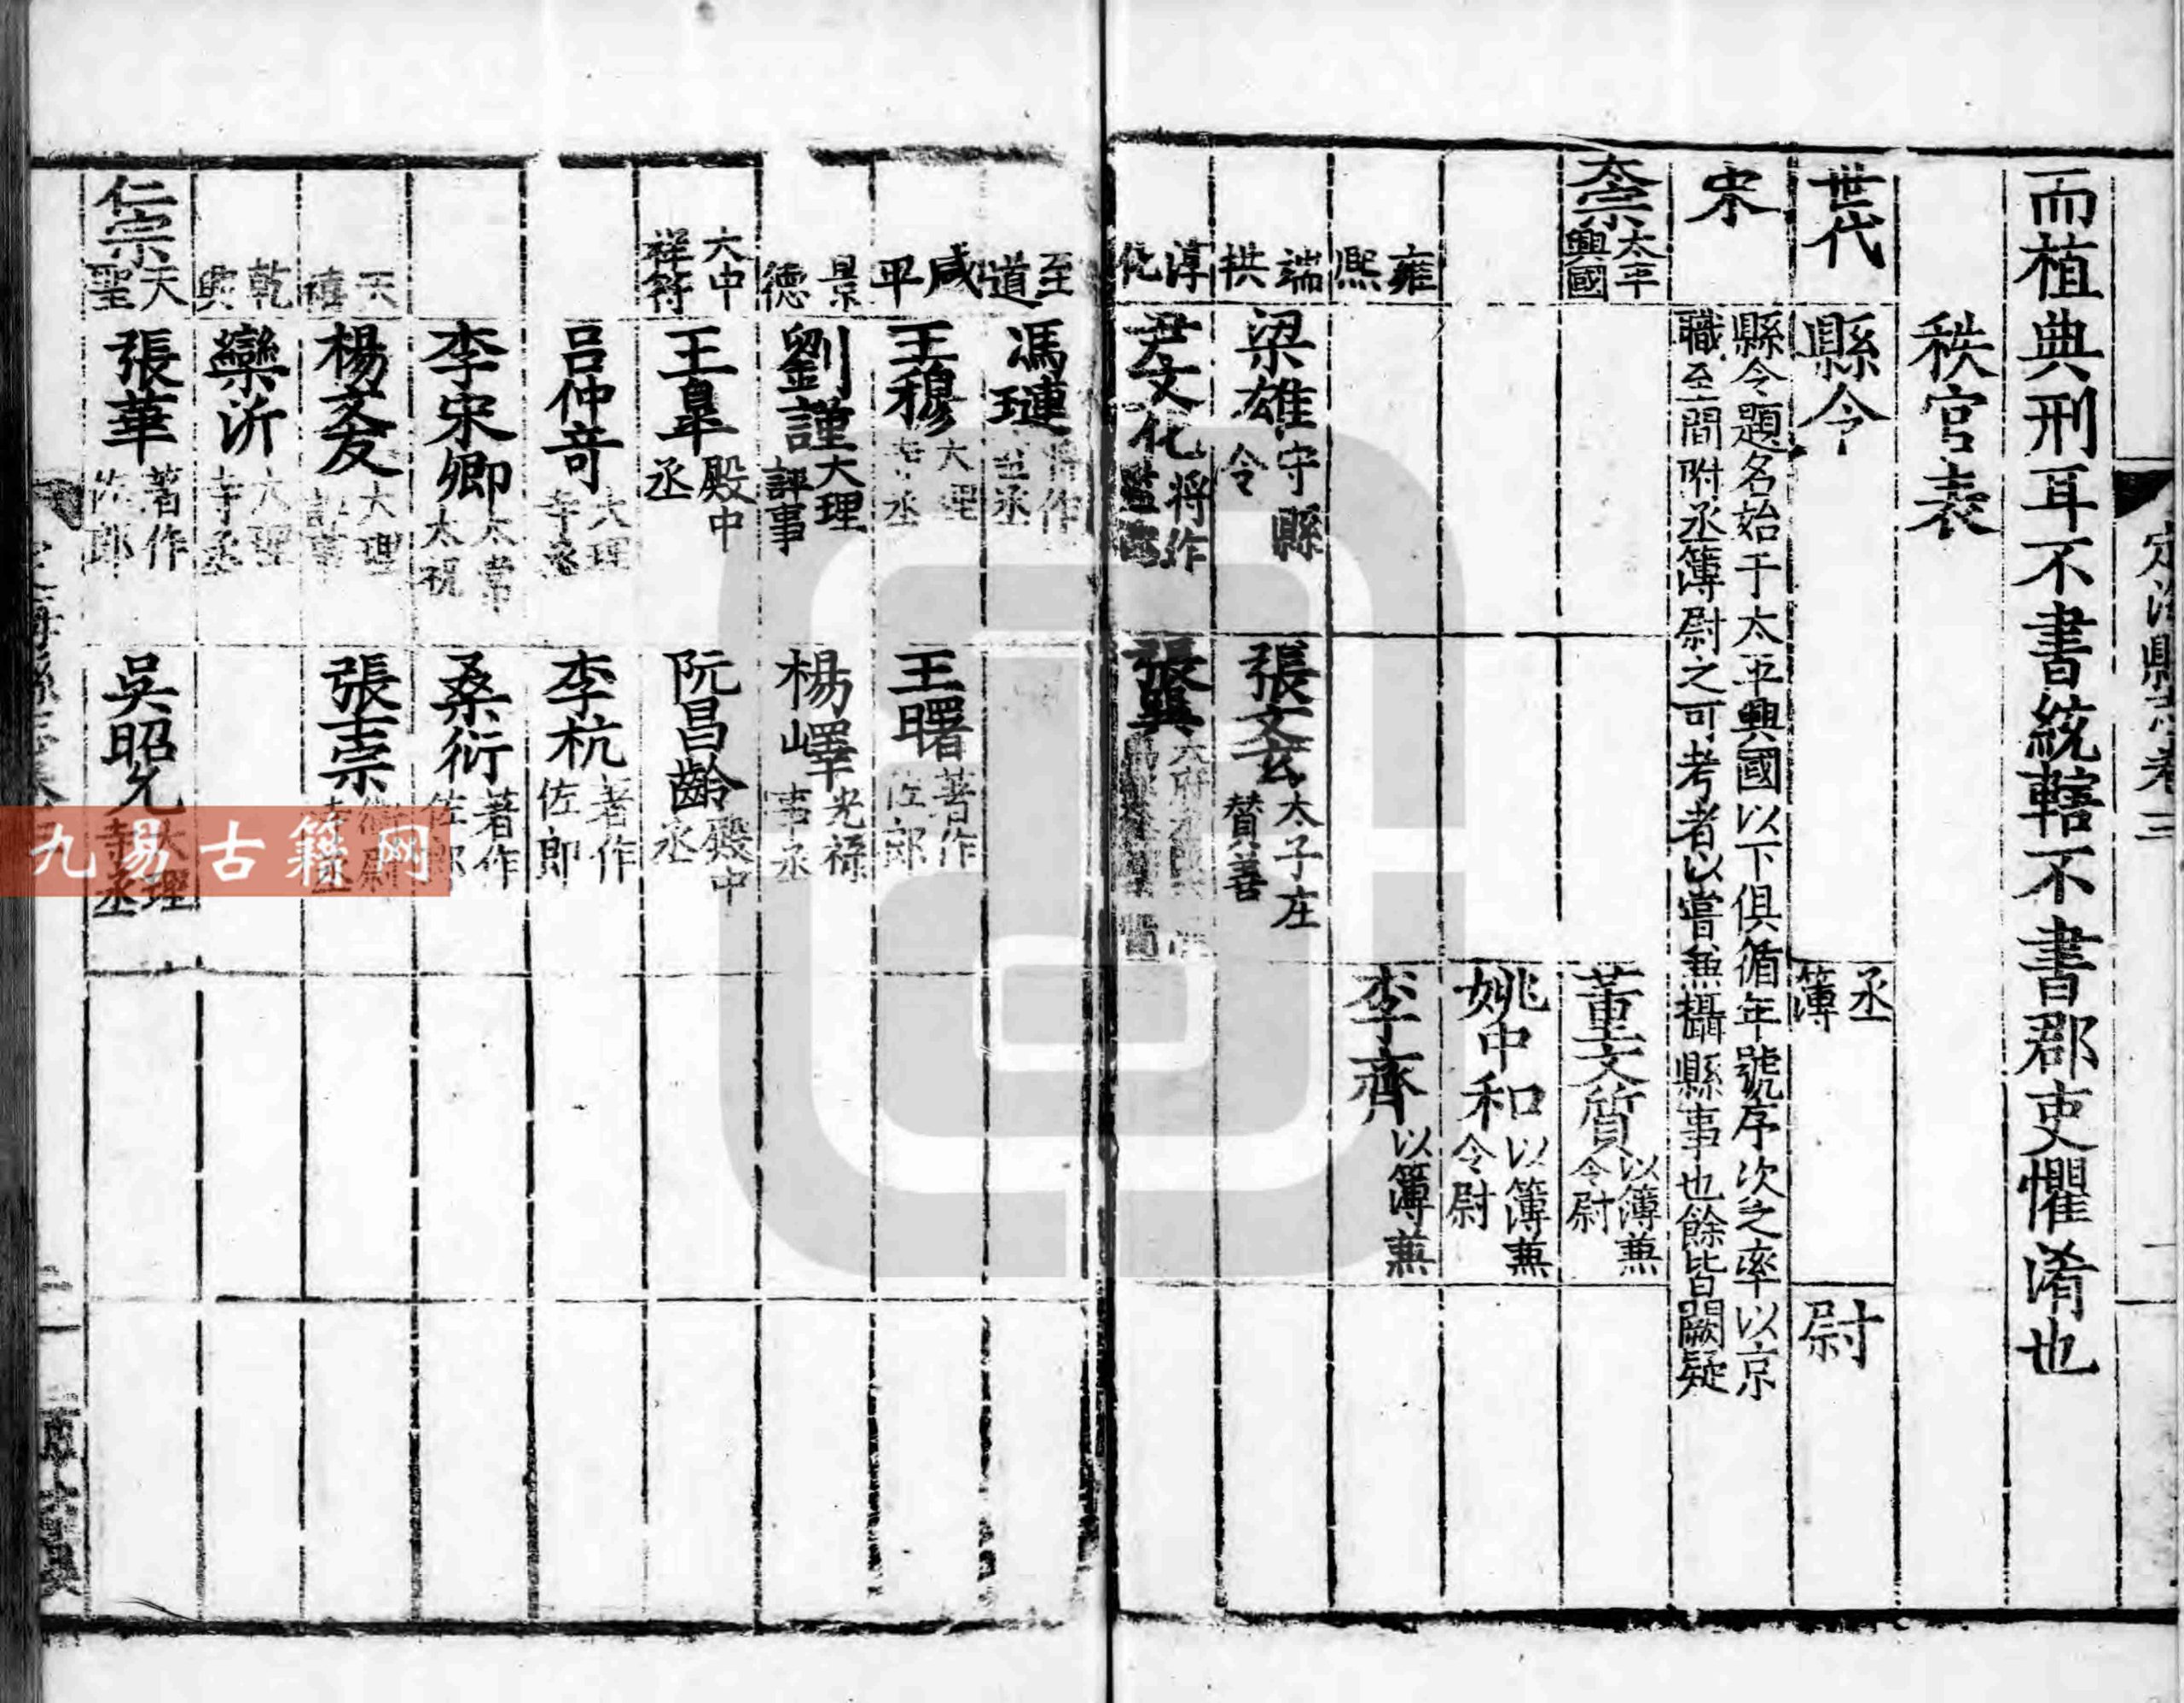 而植典刑耳不書統轄不書郡吏懼淆也
秩官表
世代 縣令 丞簿 尉
宋 縣令題名始于太平興國以下俱循年號序次之率以京
職至間附丞簿尉之可考者以嘗無攝縣事也餘皆闕疑
太宗 太平興國 董文質 以簿兼令尉
姚中和 以簿兼令尉
雍熙 李齊 以簿兼
端拱 梁雄 守縣令 張文玄 太子左贊善
淳化 尹文化 將作監 張巽
至道 馮璉 將作監丞
咸平 王穆 大理寺丞 王曙 著作佐郎
景德 劉謹 大理評事 楊嶧 光祿事丞
大中祥符 王皐 殿中丞 阮昌齡 殿中丞
呂仲竒 大理寺丞 李杭 著作佐郎
李宋卿 太常太祝 桑衍 著作佐郎
天禧 楊文友 大理 張宗 衛尉寺丞
乾興 欒沂 大理寺丞
仁宗 天聖 張華 著作佐郎 吳昭允 大理寺丞
九易古籍网